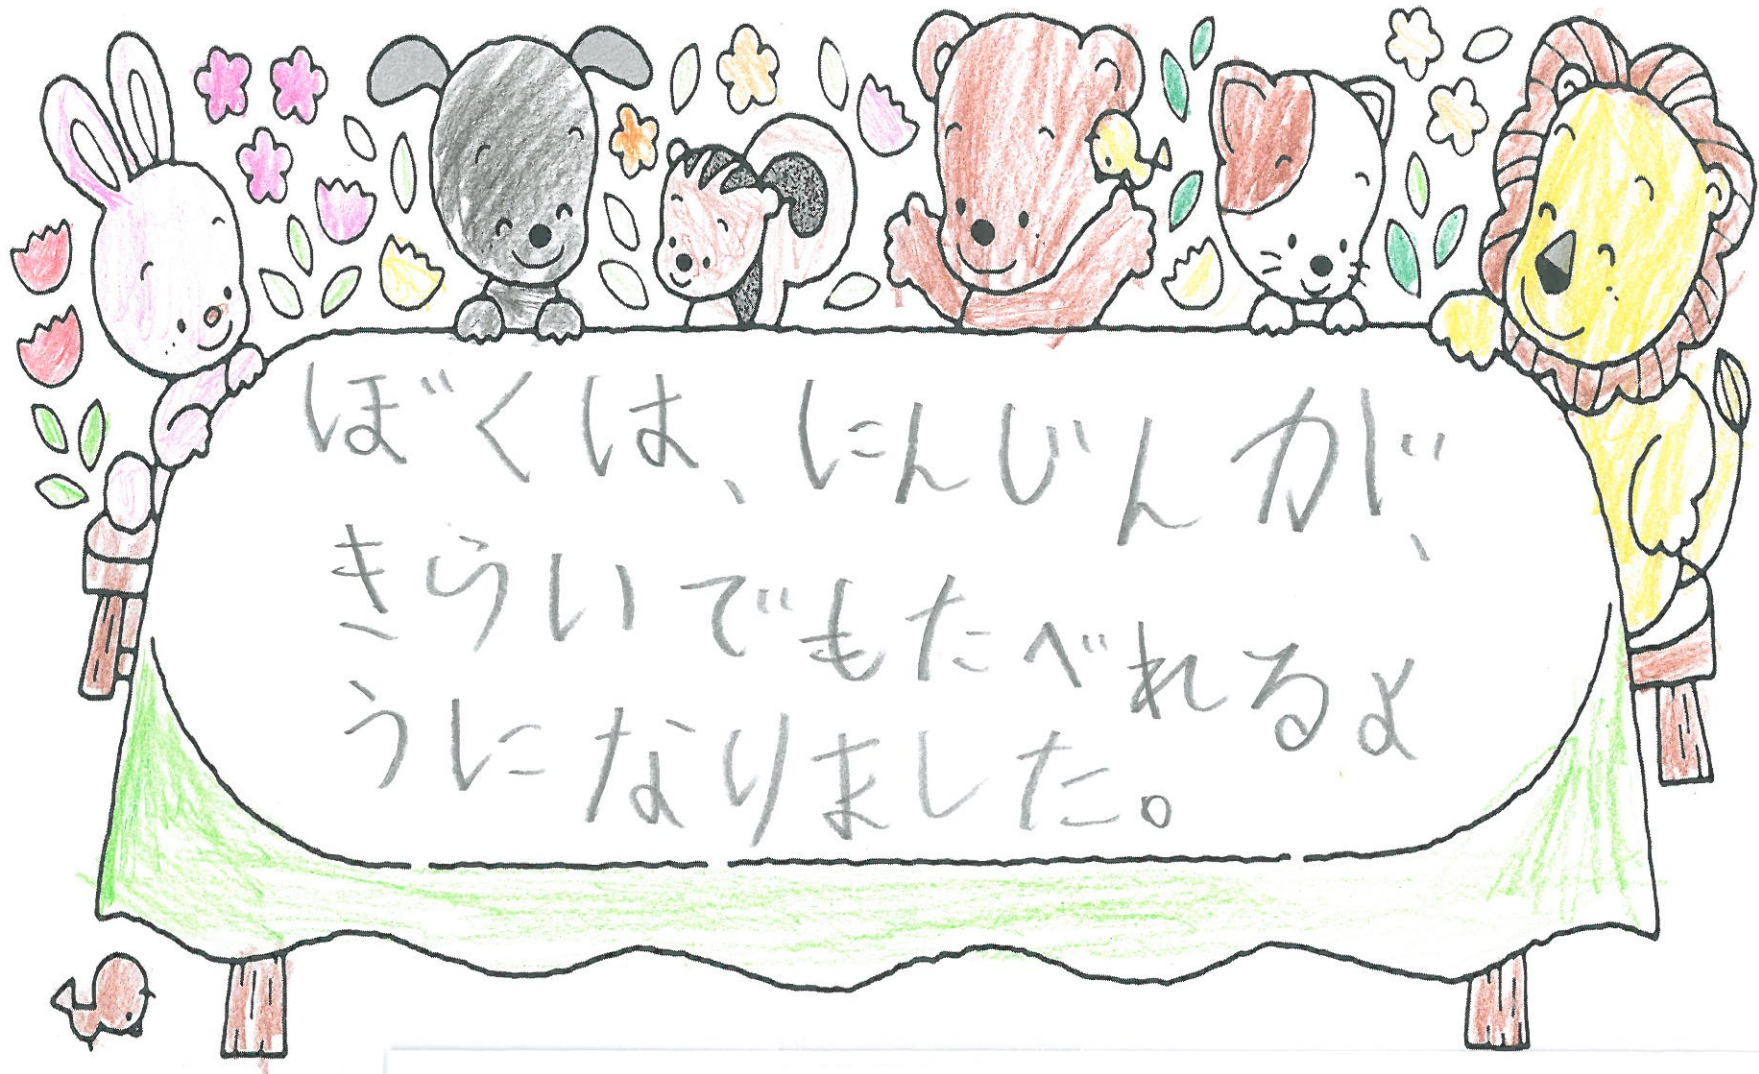 ぼくは、にんじんが、
きらいでもたべれるよ
うになりました。